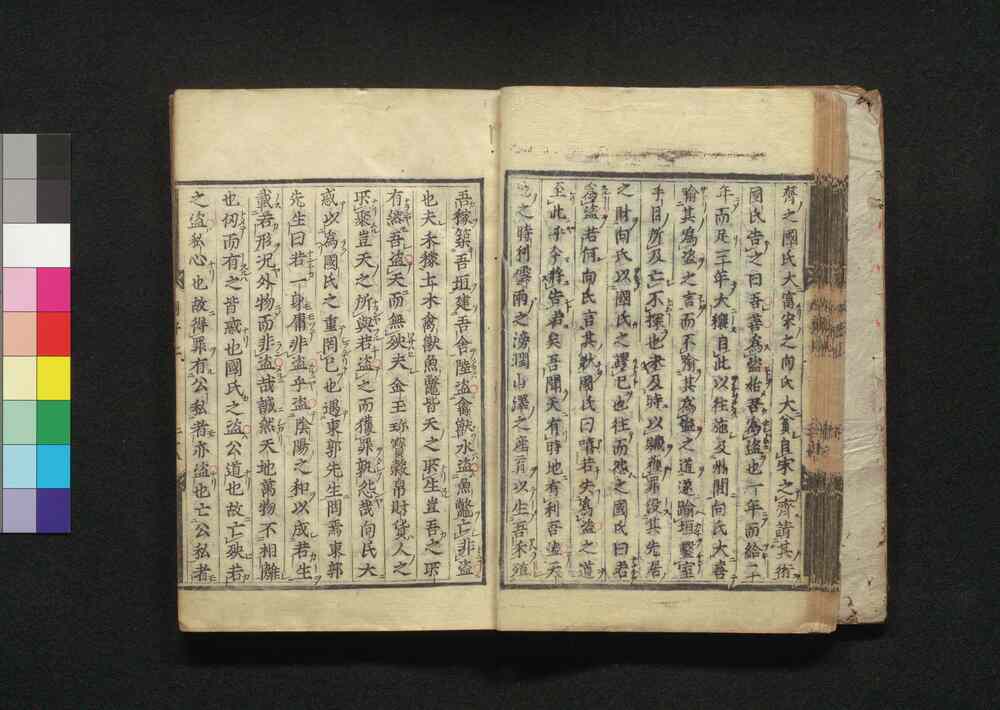 齊之國氏大富宋之向氏大貧自宋之齊請其術
國氏告之曰吾善爲盗始吾爲盗也一年而給二
年而足三年大穰自此以往施及州閭向氏大喜
喻其爲盗之言而不喻其爲盗之道遂踰垣鑿室
手目所及亡不探也未及時以贓獲罪没其先居
之財向氏以國氏之謬已也往而怨之國氏曰若
爲盗若何向氏言其狀國氏曰嘻若失爲盗之道
至此乎今將告若矣吾聞天有時地有利吾盗天
地之時利雲雨之滂潤山澤之産育以生吾禾殖
吾稼築吾垣建吾舍陸盗禽獸水盗魚鼈亡非盗
也夫禾稼土木禽獸魚鼈皆天之所生豈吾之所
有然吾盗天而無殃夫金玉珎寳穀帛財貨人之
所聚豈天之所與若盗之而獲罪孰怨哉向氏大
惑以爲國氏之重罔已也過東郭先生問焉東郭
先生曰若一身庸非盗乎盗陰陽之和以成若生
載若形况外物而非盗哉誠然天地萬物不相離
也仞而有之皆惑也國氏之盗公道也故亡殃若
之盗私心也故得罪有公私者亦盗也亡公私者